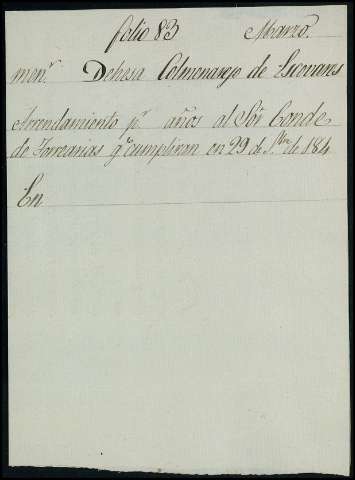 folio 83 Marzo.
men.r Dehesa Colmenarejo de Escovares
Arrendamiento p.r años al S.or Conde
de Torrearias q.e cumpliran en 29 de S.tbre de 184
En